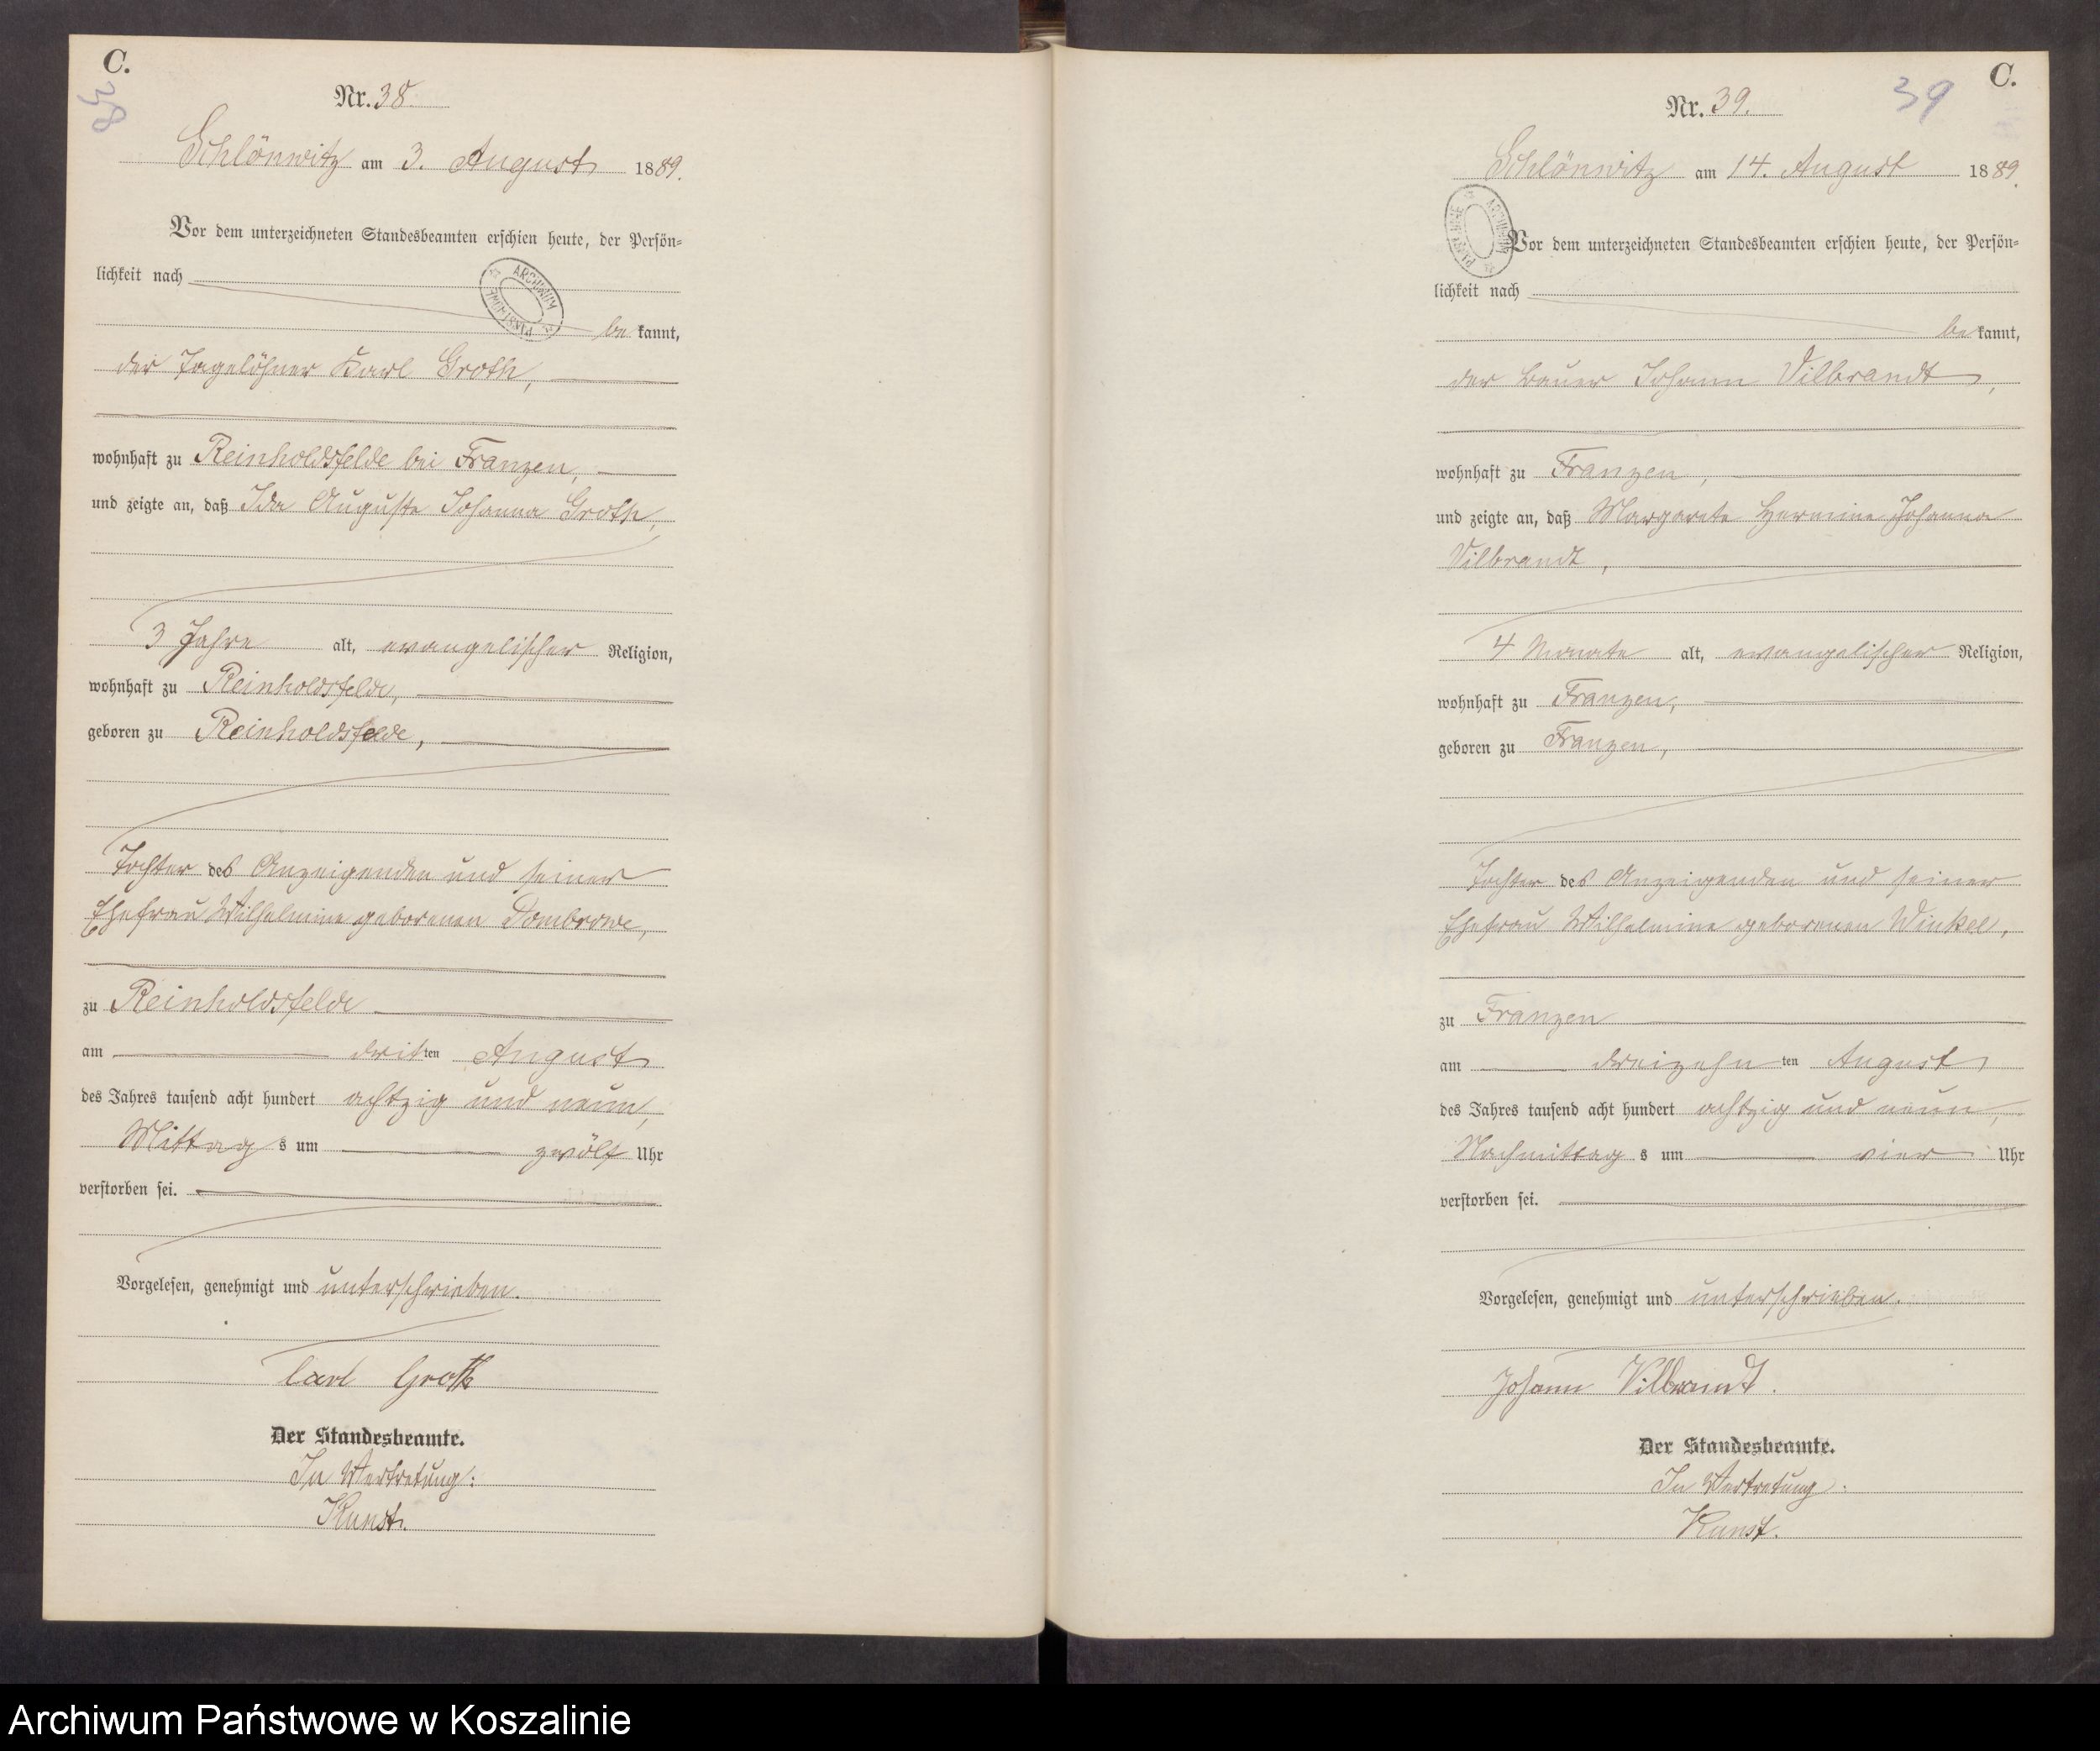 C.
38
Nr. 38.
Schlönwitz am 3. August 1889.
Vor dem unterzeichneten Standesbeamten erschien heute, der Persön-
lichkeit nach
be kannt,
der Tagelöhner Karl Groth,
wohnhaft zu Reinholdsfelde bei Franzen,
und zeigte an, daß Ida Auguste Johanna Groth,
3 Jahre alt, evangelischer Religion,
wohnhaft zu Reinholdsfelde,
geboren zu Reinholdsfelde,
Tochter des Anzeigenden und seiner
Ehefrau Wilhelmine geborenen Dombrowe,
zu Reinholdsfelde
am dritten August
des Jahres tausend acht hundert achtzig und neun,
Mittags um zwölf Uhr
verstorben sei.
Vorgelesen, genehmigt und unterschrieben.
Carl Groth
Der Standesbeamte.
In Vertretung:
Kunst.
ARCHIWUM PAŃSTWOWE
C.
39
Nr. 39.
Schlönwitz am 14. August 1889.
Vor dem unterzeichneten Standesbeamten erschien heute, der Persön-
lichkeit nach
be kannt,
der Bauer Johann Vilbrandt,
wohnhaft zu Franzen,
und zeigte an, daß Margarete Hermine Johanna
Vilbrandt,
4 Monate alt, evangelischer Religion,
wohnhaft zu Franzen,
geboren zu Franzen,
Tochter des Anzeigenden und seiner
Ehefrau Wilhelmine geborenen Winkel,
zu Franzen
am dreizehnten August
des Jahres tausend acht hundert achtzig und neun,
Nachmittags um vier Uhr
verstorben sei.
Vorgelesen, genehmigt und unterschrieben.
Johann Vilbrandt.
Der Standesbeamte.
In Vertretung:
Kunst.
ARCHIWUM PAŃSTWOWE
Archiwum Państwowe w Koszalinie